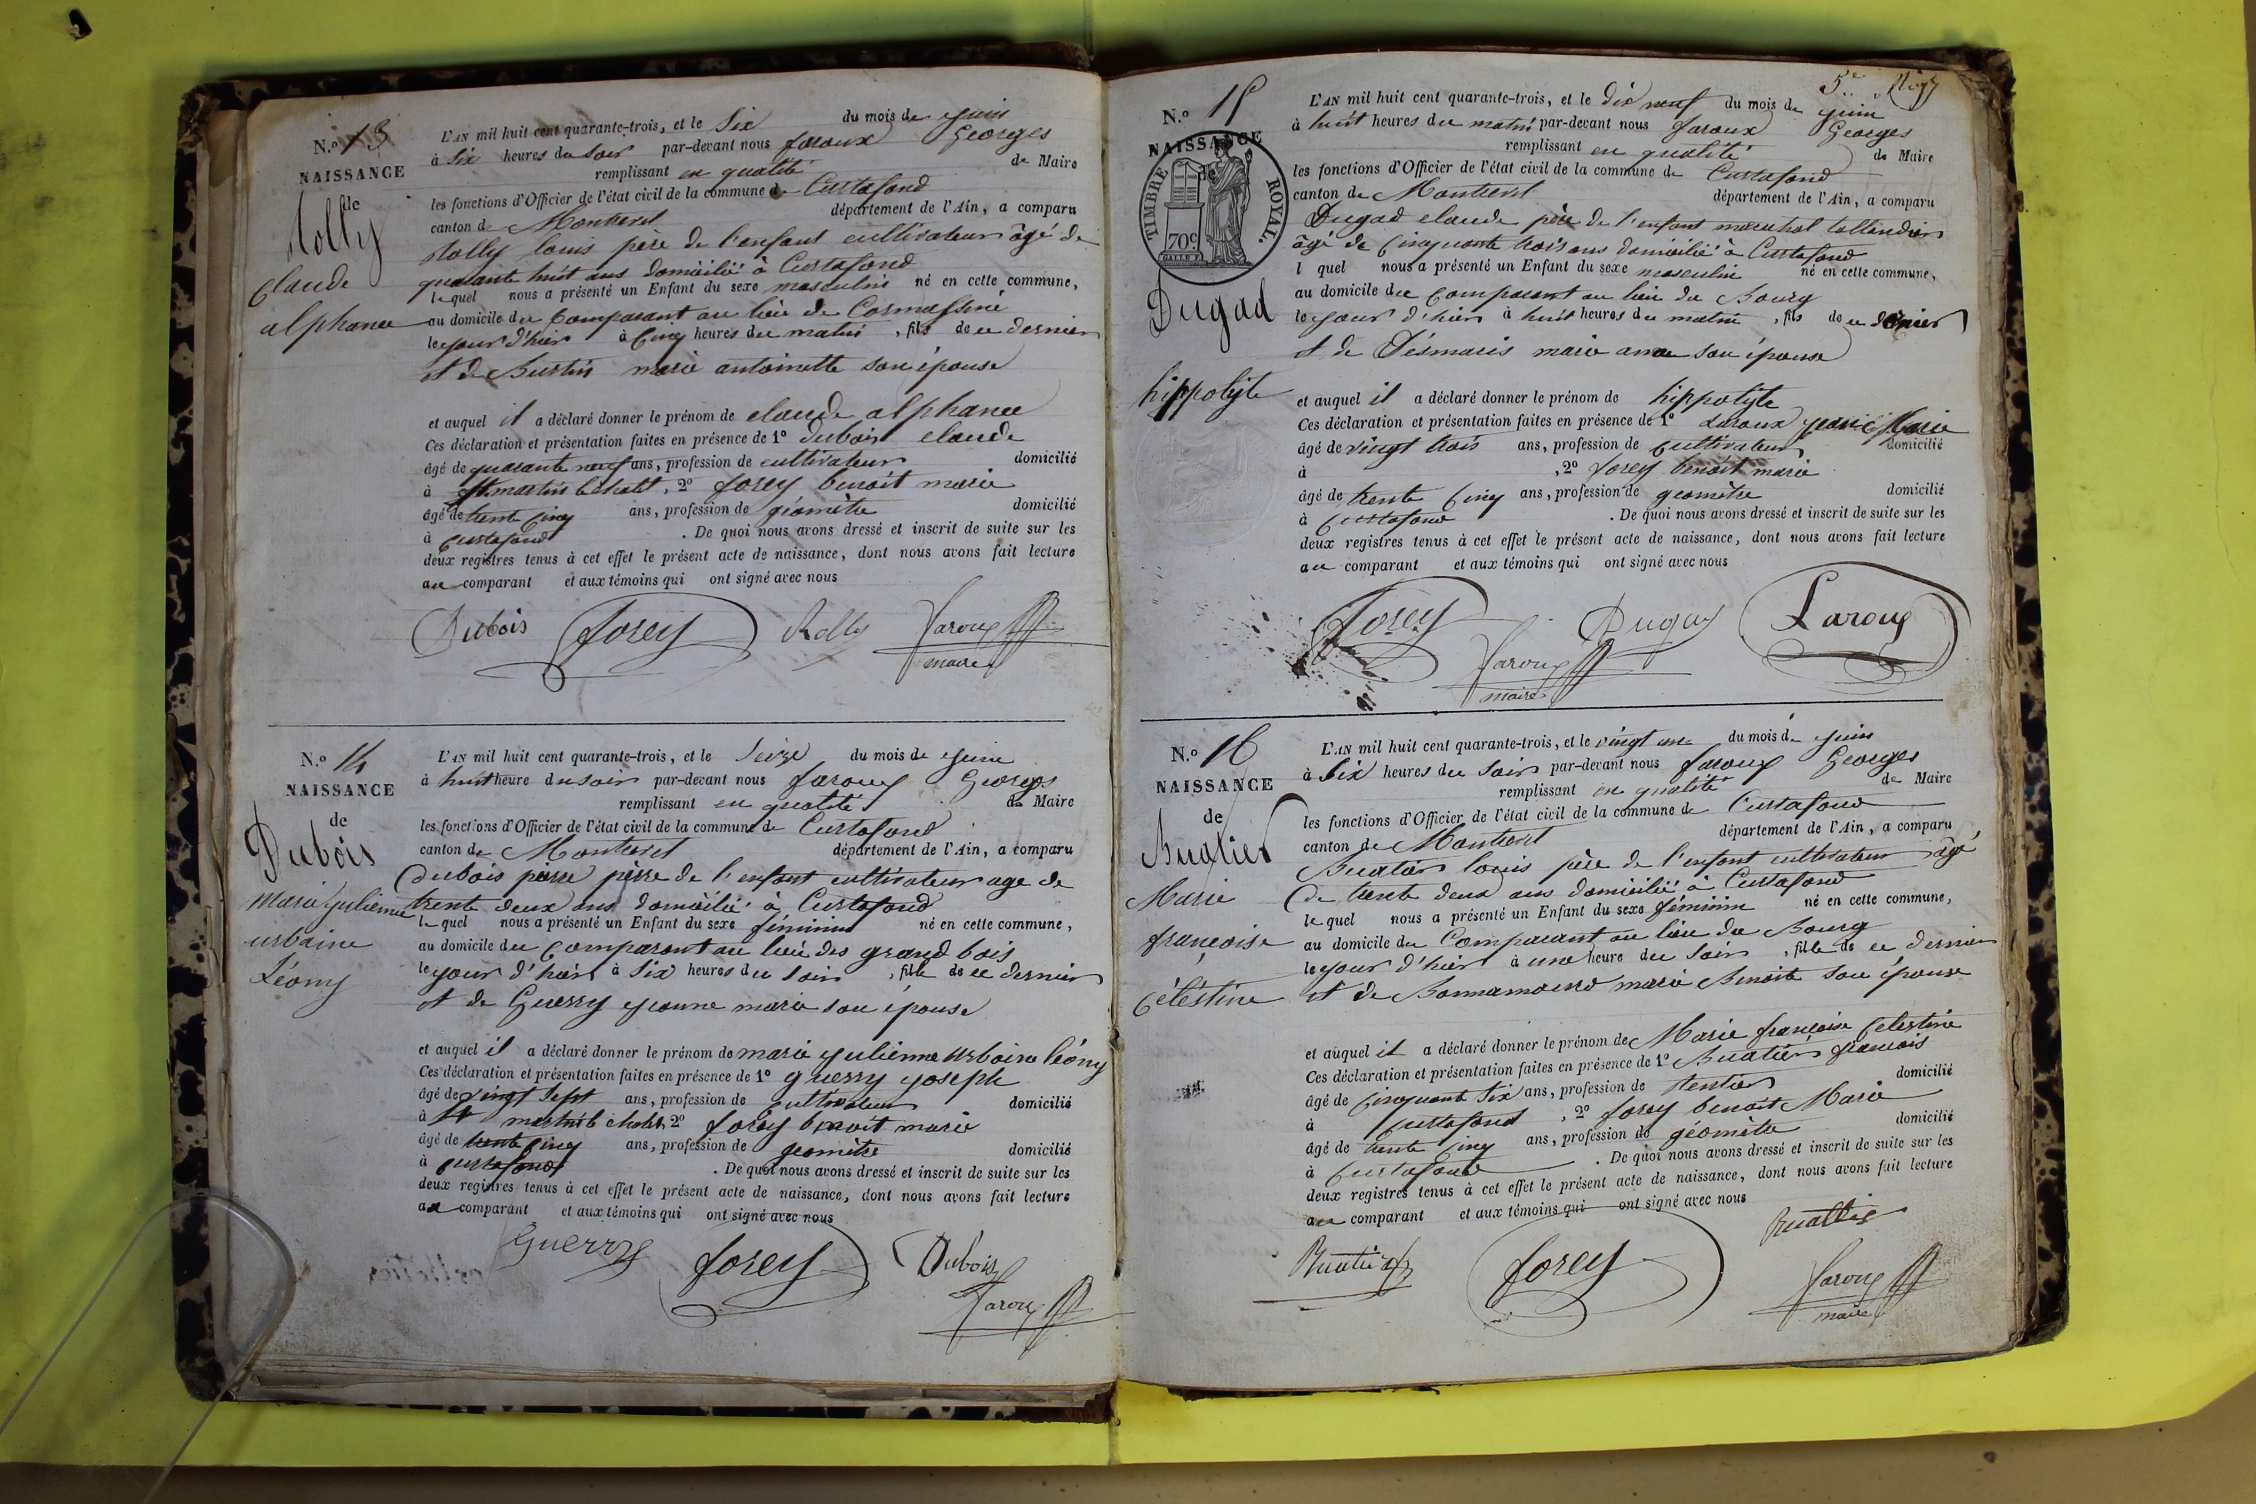 N.º 13
NAISSANCE
de
Rolly
Claude
alphonse
L'AN mil huit cent quarante-trois, et le Six du mois de juin
à six heures du soir par-devant nous faroux Georges
remplissant en qualité de Maire
les fonctions d'Officier de l'état civil de la commune de Curtafond
canton de Montrevel département de l'Ain, a comparu
Rolly louis père de l'enfant cultivateur âgé de
quarante huit ans domicilié à Curtafond
lequel nous a présenté un Enfant du sexe masculin né en cette commune,
au domicile du Comparant au lieu de
le jour d'hier à Cinq heures du matin, fils de ce dernier
et de Burtin marie antoinette son épouse
et auquel il a déclaré donner le prénom de claude alphonse
Ces déclaration et présentation faites en présence de 1º dubois claude
âgé de quarante neuf ans, profession de cultivateur domicilié
à St martin lechatel, 2º forey benoit marie
âgé de trente cinq ans, profession de géomètre domicilié
à Curtafond. De quoi nous avons dressé et inscrit de suite sur les
deux registres tenus à cet effet le présent acte de naissance, dont nous avons fait lecture
au comparant et aux témoins qui ont signé avec nous
Dubois forey Rolly faroux
maire
N.º 14
NAISSANCE
de
Dubois
Marie Julienne
urbaine
Léony
L'AN mil huit cent quarante-trois, et le Seize du mois de juin
à huit heure du soir par-devant nous faroux Georges
remplissant en qualité de Maire
les fonctions d'Officier de l'état civil de la commune de Curtafond
canton de Montrevel département de l'Ain, a comparu
dubois pierre père de l'enfant cultivateur age de
trente deux ans domicilié à Curtafond
le quel nous a présenté un Enfant du sexe féminin né en cette commune,
au domicile du Comparant au lieu des grand bois
le jour d'hier à six heures du soir, fille de ce dernier
et de Guerry jeanne marie son épouse
et auquel il a déclaré donner le prénom de marie julienne urbaine léony
Ces déclaration et présentation faites en présence de 1º guerry joseph
âgé de vingt sept ans, profession de cultivateur domicilié
à St martin le chatel, 2º forey benoit marie
âgé de trente cinq ans, profession de géomètre domicilié
à Curtafond. De quoi nous avons dressé et inscrit de suite sur les
deux registres tenus à cet effet le présent acte de naissance, dont nous avons fait lecture
au comparant et aux témoins qui ont signé avec nous
Guerry forey Dubois
faroux
5.e
N.º 15
NAISSANCE
de
TIMBRE ROYAL.
70c
Dugad
hippolyte
L'AN mil huit cent quarante-trois, et le dix neuf du mois de juin
à huit heures du matin par-devant nous faroux Georges
remplissant en qualité de Maire
les fonctions d'Officier de l'état civil de la commune de Curtafond
canton de Montrevel département de l'Ain, a comparu
Dugad claude père de l'enfant marechal tallendier
âgé de Cinquante trois ans domicilié à Curtafond
l quel nous a présenté un Enfant du sexe masculin né en cette commune,
au domicile du Comparant au lieu du Bourg
le jour d'hier à huit heures du matin, fils de ce dernier
et de Désmaris marie anne son épouse
et auquel il a déclaré donner le prénom de hippolyte
Ces déclaration et présentation faites en présence de 1º Laroux Marie
âgé de vingt trois ans, profession de cultivateur domicilié
à , 2º forey benoit marie
âgé de trente cinq ans, profession de géomètre domicilié
à Curtafond. De quoi nous avons dressé et inscrit de suite sur les
deux registres tenus à cet effet le présent acte de naissance, dont nous avons fait lecture
au comparant et aux témoins qui ont signé avec nous
forey Dugad Laroux
faroux
maire
N.º 16
NAISSANCE
de
Buatier
Marie
françoise
Célestine
L'AN mil huit cent quarante-trois, et le vingt un du mois de juin
à Six heures du soir par-devant nous faroux Georges
remplissant en qualité de Maire
les fonctions d'Officier de l'état civil de la commune de Curtafond
canton de Montrevel département de l'Ain, a comparu
Buatier louis père de l'enfant cultivateur âgé
de trente deux ans domicilié à Curtafond
le quel nous a présenté un Enfant du sexe féminin né en cette commune,
au domicile du Comparant au lieu du Bourg
le jour d'hier à une heure du soir, fille de ce dernier
et de marie Benoite son épouse
et auquel il a déclaré donner le prénom de Marie françoise Celestine
Ces déclaration et présentation faites en présence de 1º Buatier françois
âgé de Cinquante six ans, profession de rentier domicilié
à Curtafond, 2º forey benoit Marie
âgé de trente cinq ans, profession de géomètre domicilié
à Curtafond. De quoi nous avons dressé et inscrit de suite sur les
deux registres tenus à cet effet le présent acte de naissance, dont nous avons fait lecture
au comparant et aux témoins qui ont signé avec nous
Buatier
Buatier forey faroux
maire